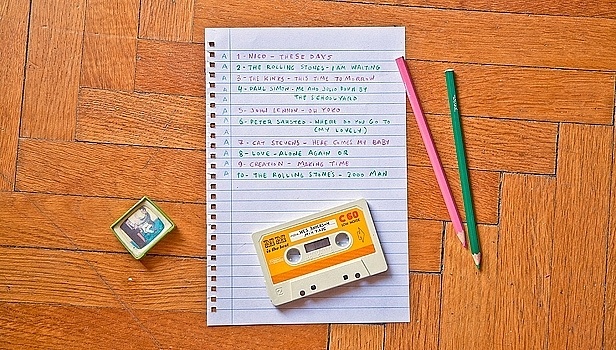 A 1- NICO - THESE DAYS
A 2- THE ROLLING STONES - I AM WAITING
A 3- THE KINKS - THIS TIME TOMORROW
A 4- PAUL SIMON - ME AND JULIO DOWN BY
THE SCHOOLYARD
A 5- JOHN LENNON - OH YOKO
A 6- PETER SARSTED - WHERE DO YOU GO TO
(MY LOVELY)
A 7- CAT STEVENS - HERE COMES MY BABY
A 8- LOVE - ALONE AGAIN OR
A 9- CREATION - MAKING TIME
A 10- THE ROLLING STONES - 2000 MAN
C 60